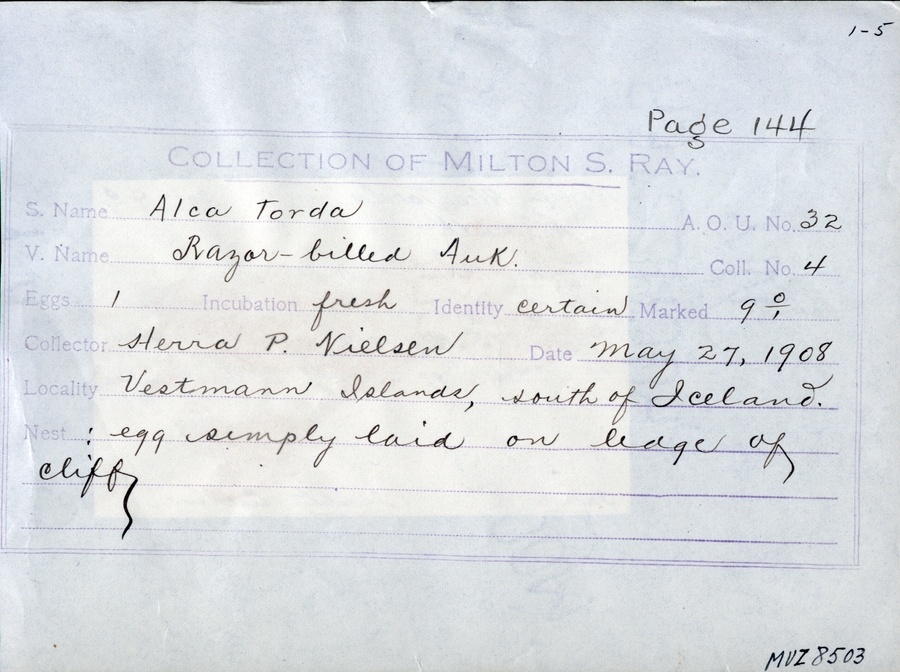 1-5
Page 144
COLLECTION OF MILTON S. RAY.
S. Name Alca Torda A. O. U. No. 32
V. Name Razor-billed Auk. Coll. No. 4
Eggs 1 Incubation fresh Identity certain Marked 9 0/1
Collector Herra P. Nielsen Date May 27, 1908
Locality Vestmann Islands, south of Iceland.
Nest : egg simply laid on ledge of
cliff
MVZ 8503